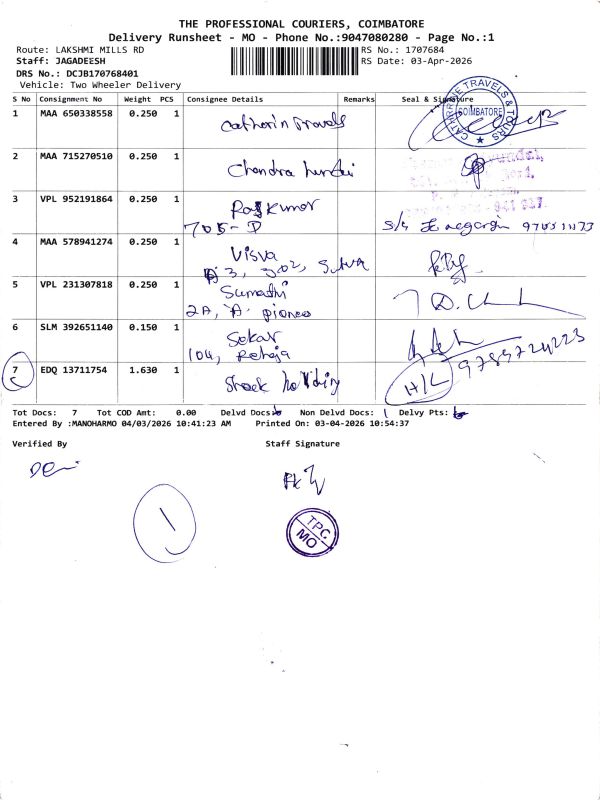 THE PROFESSIONAL COURIERS, COIMBATORE
Delivery Runsheet - MO - Phone No.:9047080280 - Page No.:1
Route: LAKSHMI MILLS RD
RS No.: 1707684
Staff: JAGADEESH
RS Date: 03-Apr-2026
DRS No.: DCJB170768401
Vehicle: Two Wheeler Delivery
S No Consignment No Weight PCS Consignee Details Remarks Seal & Signature
1 MAA 650338558 0.250 1 Catherin Travels
CATHERINE TRAVELS & TOURS
COIMBATORE
2 MAA 715270510 0.250 1 Chandra
3 VPL 952191864 0.250 1 Rajkumar
705-D
4 MAA 578941274 0.250 1 Visva
3, 302,
5 VPL 231307818 0.250 1 Sumathi
2A, 'A' pioneo
6 SLM 392651140 0.150 1 Sekar
104, Raheja
7 EDQ 13711754 1.630 1 Stock holding
H/L 9789724223
Tot Docs: 7 Tot COD Amt: 0.00 Delvd Docs: 6 Non Delvd Docs: 1 Delvy Pts:
Entered By :MANOHARMO 04/03/2026 10:41:23 AM Printed On: 03-04-2026 10:54:37
Verified By Staff Signature
1
TPC
MO